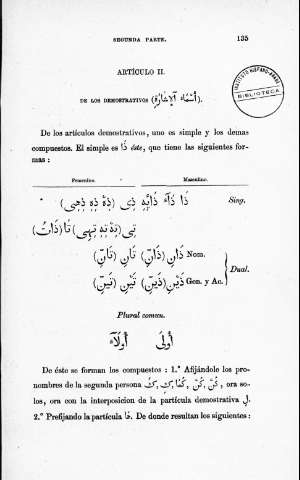 SEGUNDA PARTE. 135
INSTITUTO HISPANO-ARABE
BIBLIOTECA
ARTÍCULO II.
DE LOS DEMOSTRATIVOS (أَسْمَآء ٱلْإِشَارَةِ).
De los artículos demostrativos, uno es simple y los demas
compuestos. El simple es ذَا éste, que tiene las siguientes for-
mas:
Femenino. Masculino.
ذَا ذَآء ذَائِهِ ذِى (ذِهْ ذِهِ ذِهِى) Sing.
تِى (تِهْ تِهِ تِهِى) تَا (ذَاتُ)
ذَانِ (ذَانِّ) تَانِ (تَانِّ) Nom.
ذَيْنِ (ذَيْنِّ) تَيْنِ (تَيْنِّ) Gen. y Ac.
Dual.
Plural comun.
أُولَى أُولَآءِ
De éste se forman los compuestos: 1.° Afijándole los pro-
nombres de la segunda persona كَ, كِ, كُمَا, كُمْ, كُنَّ, ora so-
los, ora con la interposicion de la partícula demostrativa لِ.
2.° Prefijando la partícula هَا. De donde resultan los siguientes: